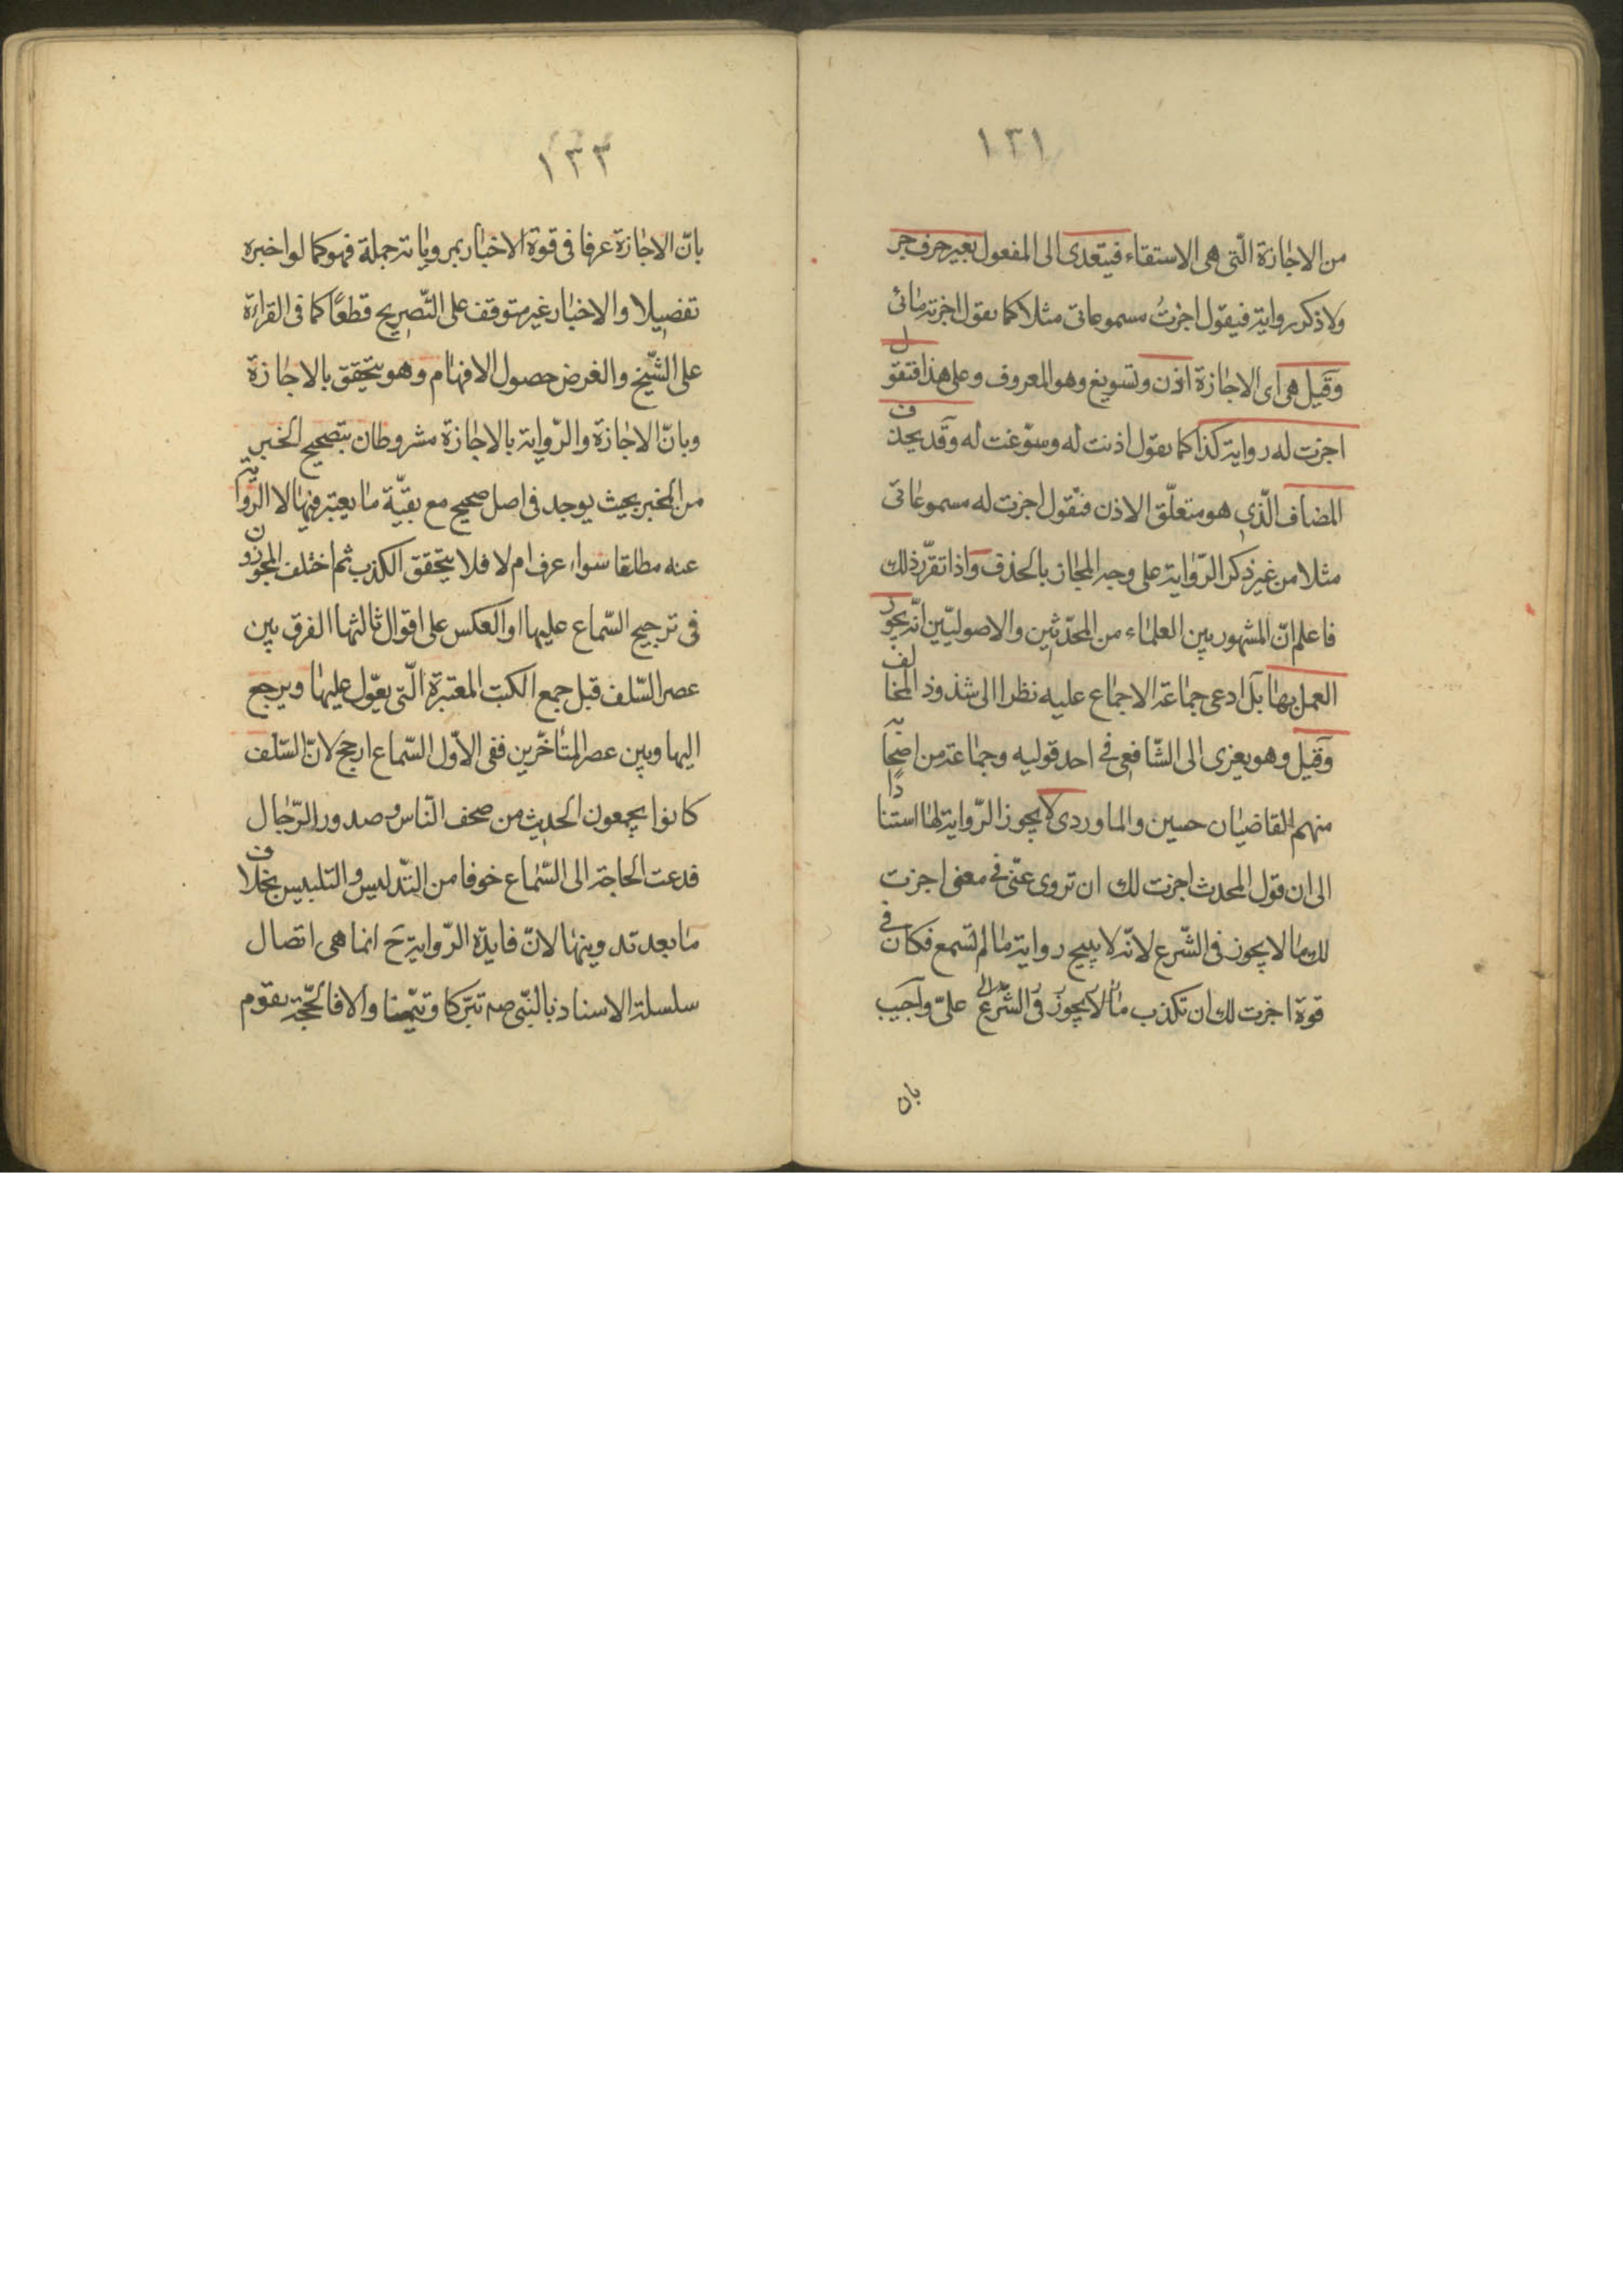 ١٣١
من الاجازة الّتى هى الاستقاء فيتعدى الى المفعول بغير حرف جر
ولا ذكر رواية فيقول اجزتُ مسموعاتى مثلا كما يقول اجزته مائى
وقيل هى اى الاجازة اذن وتسويغ وهو المعروف وعلى هذا فتقول
اجزت له رواية كذا كما يقول اذنت له وسوّغت له وقد يحذف
المضاف الّذى هو متعلّق الاذن فتقول اجزت له مسموعاتى
مثلا من غير ذكر الرّواية على وجه المجاز بالحذف واذا تقرّر ذلك
فاعلم انّ المشهور بين العلماء من المحدّثين والاصوليّين انّه يجوز
العمل بها بل ادعى جماعة الاجماع عليه نظرا الى شذوذ المخالف
وقيل وهو يعزى الى الشّافعى فى احد قوليه وجماعة من اصحابه
منهم القاضيان حسين والماوردى لا يجوز الرّواية لها استنادًا
الى ان قول المحدث اجزت لك ان تروى عنّى فى معنى اجزت
لك ما لا يجوز فى الشّرع لانّه لا يبيح رواية ما لم تسمع فكان فى
قوة اجزت لك ان تكذب ما لا يجوز فى الشّرع علىّ واجيب
بان
١٣٣
بانّ الاجازة عرفا فى قوة الاخبار بمروياته جملة فهو كما لو اخبره
تفصيلا والاخبار غير متوقف على التّصريح قطعًا كما فى القراءة
على الشّيخ والغرض حصول الافهام وهو يتحقق بالاجازة
وبانّ الاجازة والرّواية بالاجازة مشروطان بتصحيح الخبر
من المخبر بحيث يوجد فى اصل صحيح مع بقيّة ما يعتبر فيها لا الرّواية
عنه مطلقا سواء عرف ام لا فلا يتحقق الكذب ثم اختلف المجوّزون
فى ترجيح السّماع عليها او العكس على اقوال ثالثها الفرق بين
عصر السّلف قبل جمع الكتب المعتبرة الّتى يعوّل عليها ويرجع
اليها وبين عصر المتأخّرين ففى الاوّل السّماع ارجح لانّ السّلف
كانوا يجمعون الحديث من صحف النّاس وصدور الرّجال
فدعت الحاجة الى السّماع خوفا من التّدليس والتلبيس بخلاف
ما بعد تدوينها لانّ فايدة الرّواية حَ انما هى اتصال
سلسلة الاسناد بالنّبى صه تبرّكا وتيّمنا والا فالحّجة يقوم